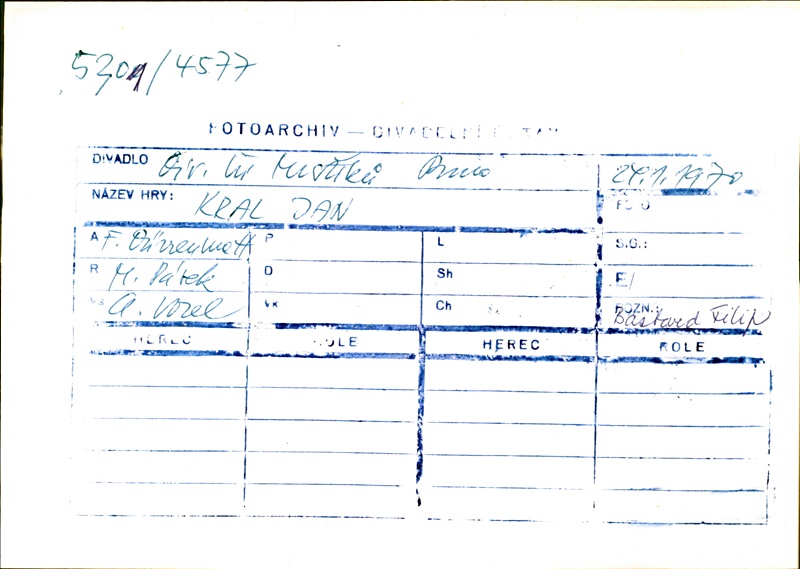 5301/4577
FOTOARCHIV — DIVADELNÍ ÚSTAV
DIVADLO Div. bří Mrštíků Brno 24.1.1970
NÁZEV HRY: KRAL JAN FOTO
A F. Dürrenmatt P L S.G.:
R M. Pásek D Sh E/
Vs A. Vorel Vk Ch POZN.: Bastard Filip
HEREC ROLE HEREC ROLE